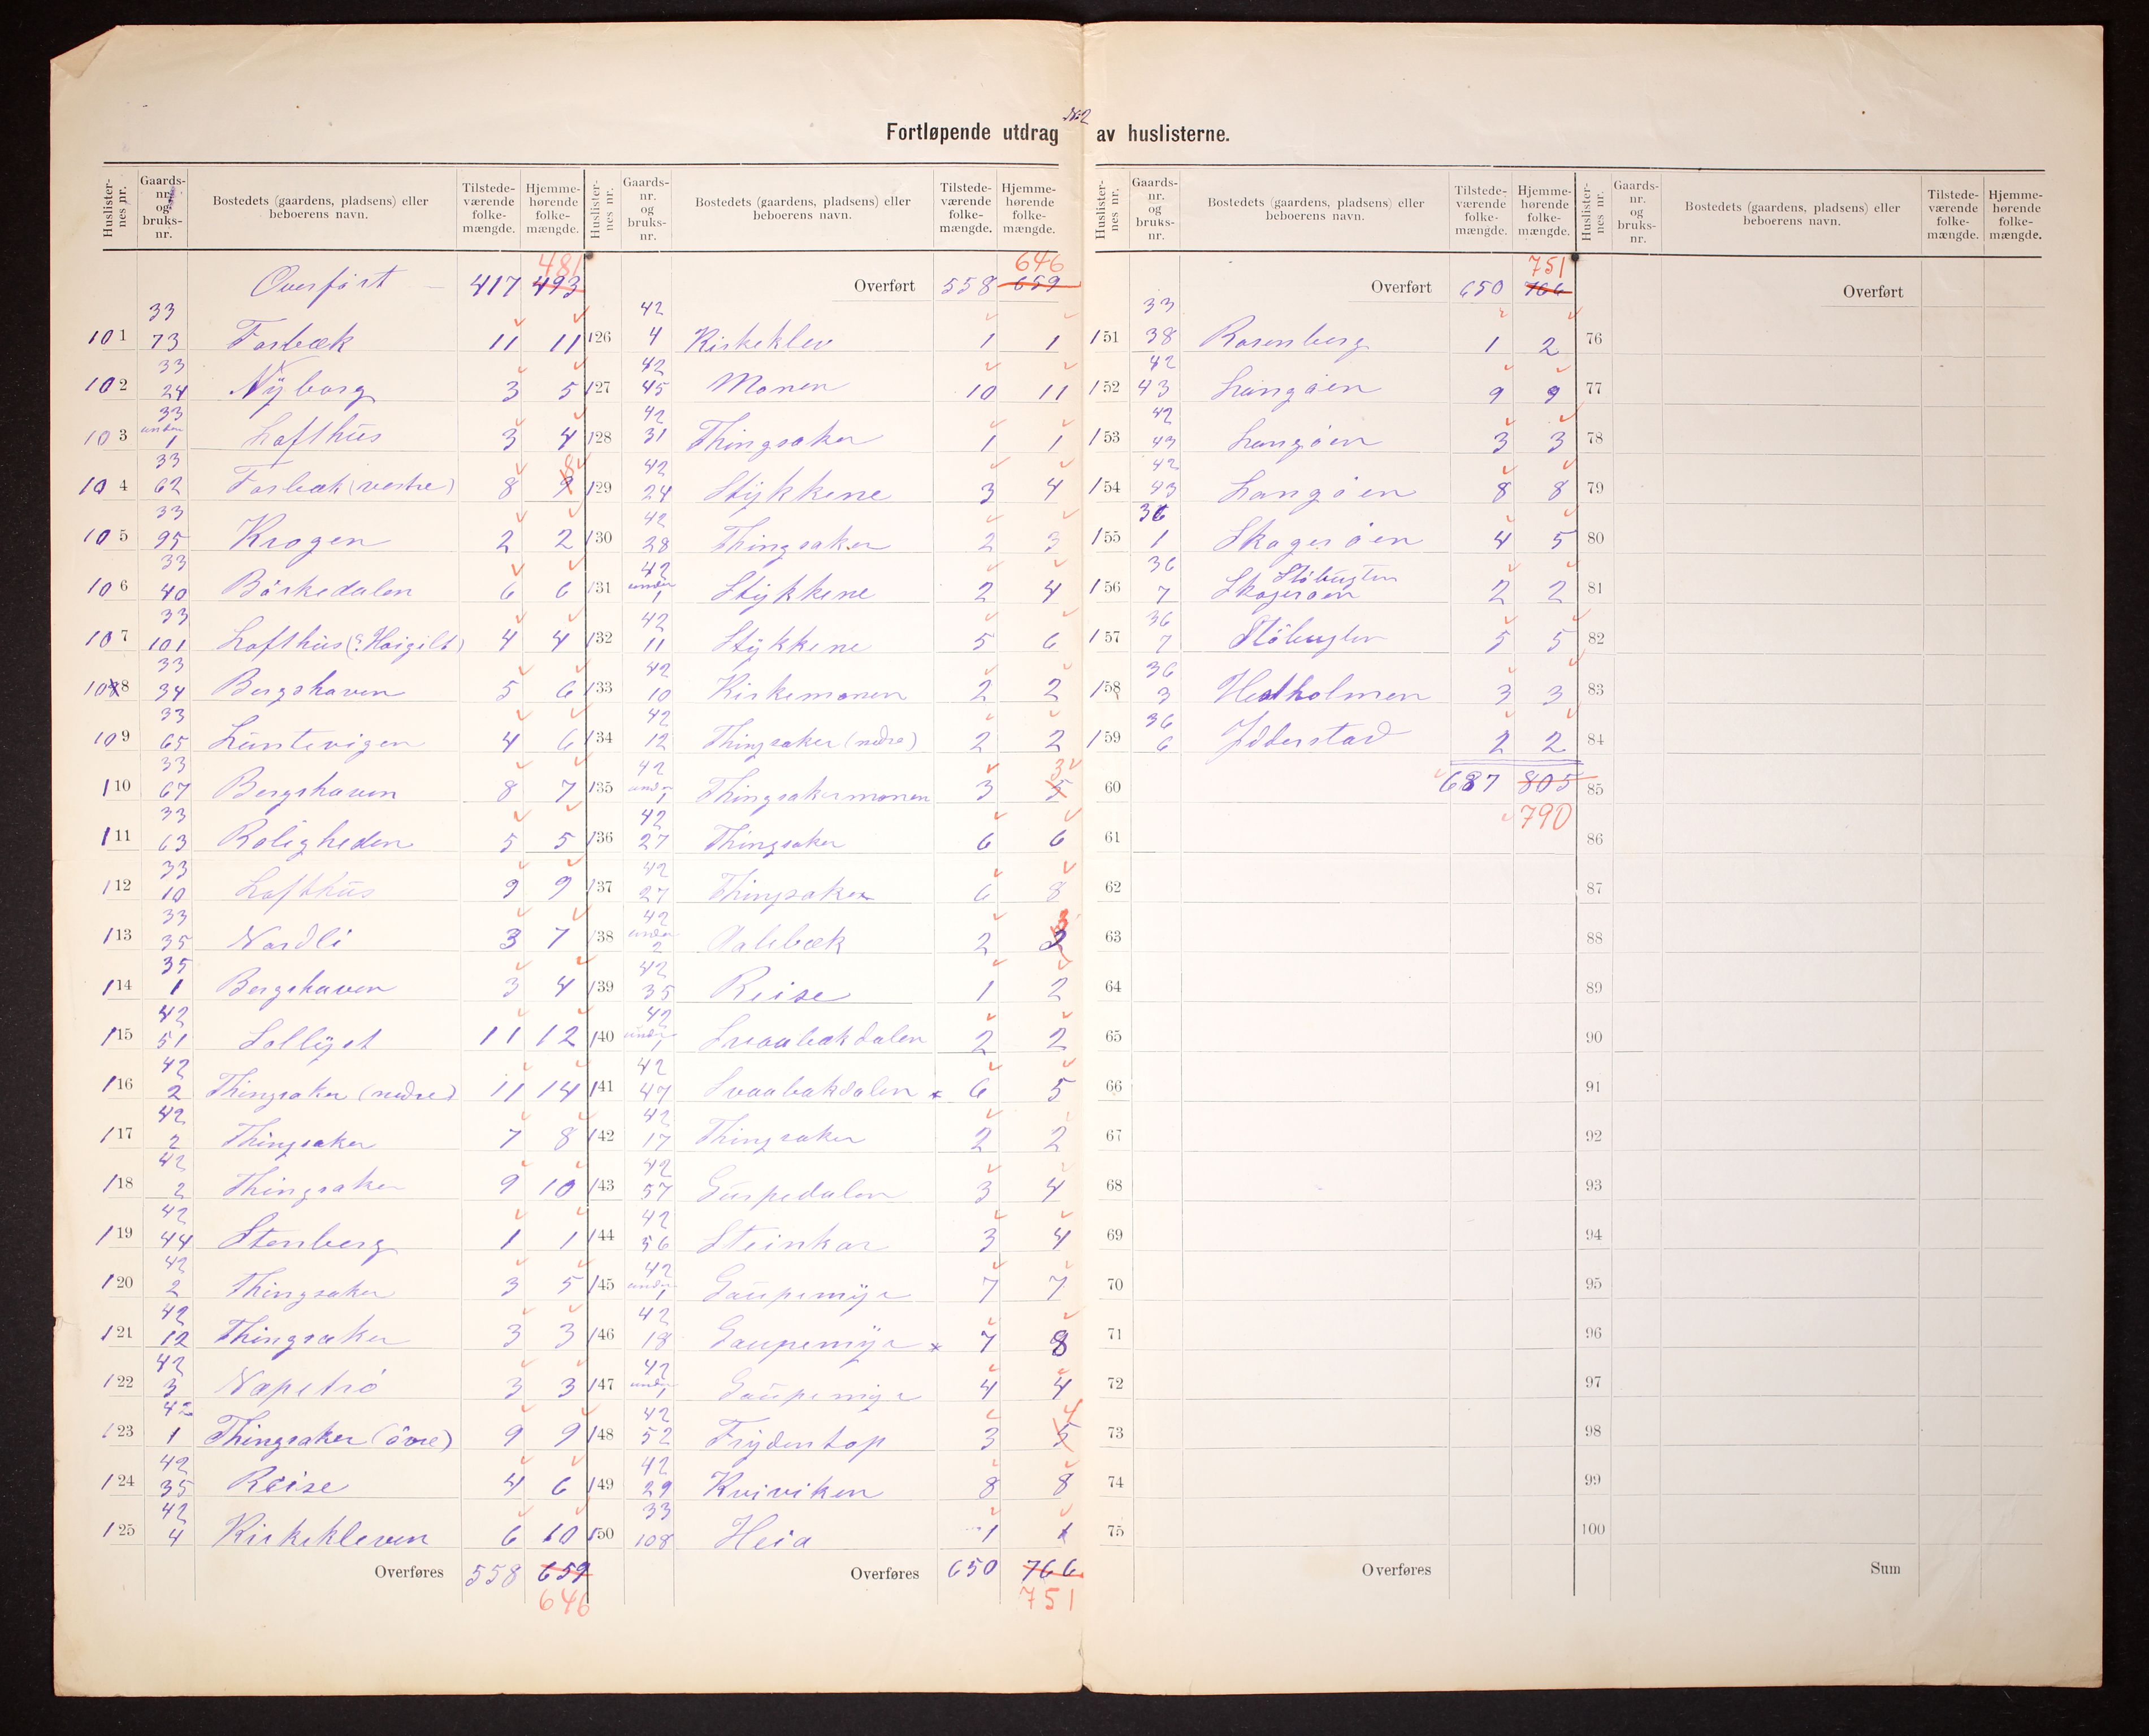 No 2
Fortløpende utdrag av huslisterne.
Huslister-nes nr. | Gaards-nr. og bruks-nr. | Bostedets (gaardens, pladsens) eller beboerens navn. | Tilstede-værende folke-mængde. | Hjemme-hørende folke-mængde.
Overført — 417 493 481
101 33 73 Forbæk 11 11
102 33 24 Nyborg 3 5
103 33 under 1 Lofthus 3 4
104 33 62 Forbæk (vestre) 8 9 8
105 33 95 Krogen 2 2
106 33 40 Börkedalen 6 6
107 33 101 Lofthus 4 4
108 33 34 Bergshaven 5 6
109 33 65 Luntevigen 4 6
110 33 67 Bergshaven 8 7
111 33 63 Roligheden 5 5
112 33 10 Lofthus 9 9
113 33 35 Nordli 3 7
114 35 1 Bergshaven 3 4
115 42 51 Sollyst 11 12
116 42 2 Thingsaker (nedre) 11 14
117 42 2 Thingsaker 7 8
118 42 2 Thingsaker 9 10
119 42 44 Stenberg 1 1
120 42 2 Thingsaker 3 5
121 42 12 Thingsaker 3 3
122 42 3 Næpetrö 3 3
123 42 1 Thingsaker (övre) 9 9
124 42 35 Reise 4 6
125 42 4 Kirkekleven 6 10
Overføres 558 659
646
Huslister-nes nr. | Gaards-nr. og bruks-nr. | Bostedets (gaardens, pladsens) eller beboerens navn. | Tilstede-værende folke-mængde. | Hjemme-hørende folke-mængde.
Overført 558 659 646
126 42 4 Kirkeklev 1 1
127 42 45 Monen 10 11
128 42 31 Thingsaker 1 1
129 42 24 Stykkene 3 4
130 42 28 Thingsaker 2 3
131 42 under 1 Stykkene 2 4
132 42 11 Stykkene 5 6
133 42 10 Kirkemonen 2 2
134 42 12 Thingsaker (nedre) 2 2
135 42 under 1 Thingsakermonen 3 5 3
136 42 27 Thingsaker 6 6
137 42 27 Thingsaker 6 8
138 42 under 2 Aalebæk 2 2
139 42 35 Reise 1 2
140 42 under 1 Svaabækdalen 2 2
141 42 47 Svaabækdalen × 6 5
142 42 17 Thingsaker 2 2
143 42 57 Guspedalen 3 4
144 42 56 Steinkar 3 4
145 42 under 1 Gaupemyr 7 7
146 42 18 Gaupemyr × 7 8
147 42 under 1 Gaupemyr 4 4
148 42 52 Frydentop 3 5 4
149 42 29 Kviviken 8 8
150 33 108 Heia 1 1
Overføres 650 766
751
Huslister-nes nr. | Gaards-nr. og bruks-nr. | Bostedets (gaardens, pladsens) eller beboerens navn. | Tilstede-værende folke-mængde. | Hjemme-hørende folke-mængde.
Overført 650 766 751
151 33 38 Rosenberg 1 2
152 42 43 Langöen 9 9
153 42 43 Langöen 3 3
154 42 43 Langöen 8 8
155 36 1 Skogeröen 4 5
156 36 7 Stöbugten Skogeröen 2 2
157 36 7 Stöbugten 5 5
158 36 3 Hestholmen 3 3
159 36 6 Ydderstad 2 2
60 687 805
790
61
62
63
64
65
66
67
68
69
70
71
72
73
74
75
Overføres
Huslister-nes nr. | Gaards-nr. og bruks-nr. | Bostedets (gaardens, pladsens) eller beboerens navn. | Tilstede-værende folke-mængde. | Hjemme-hørende folke-mængde.
Overført
76
77
78
79
80
81
82
83
84
85
86
87
88
89
90
91
92
93
94
95
96
97
98
99
100
Sum